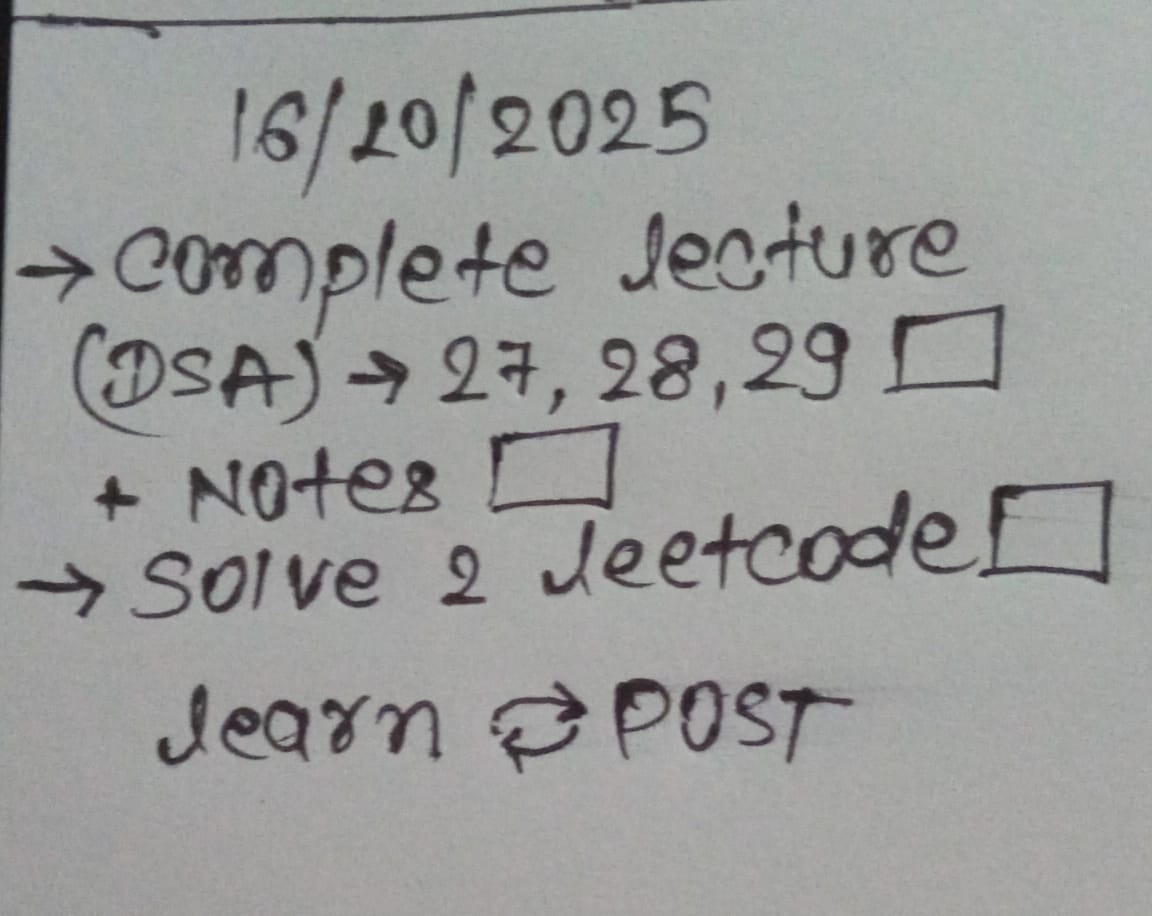 16/10/2025
→ Complete lecture
(DSA) → 27, 28, 29 □
+ Notes □
→ Solve 2 leetcode □
learn ⇄ POST